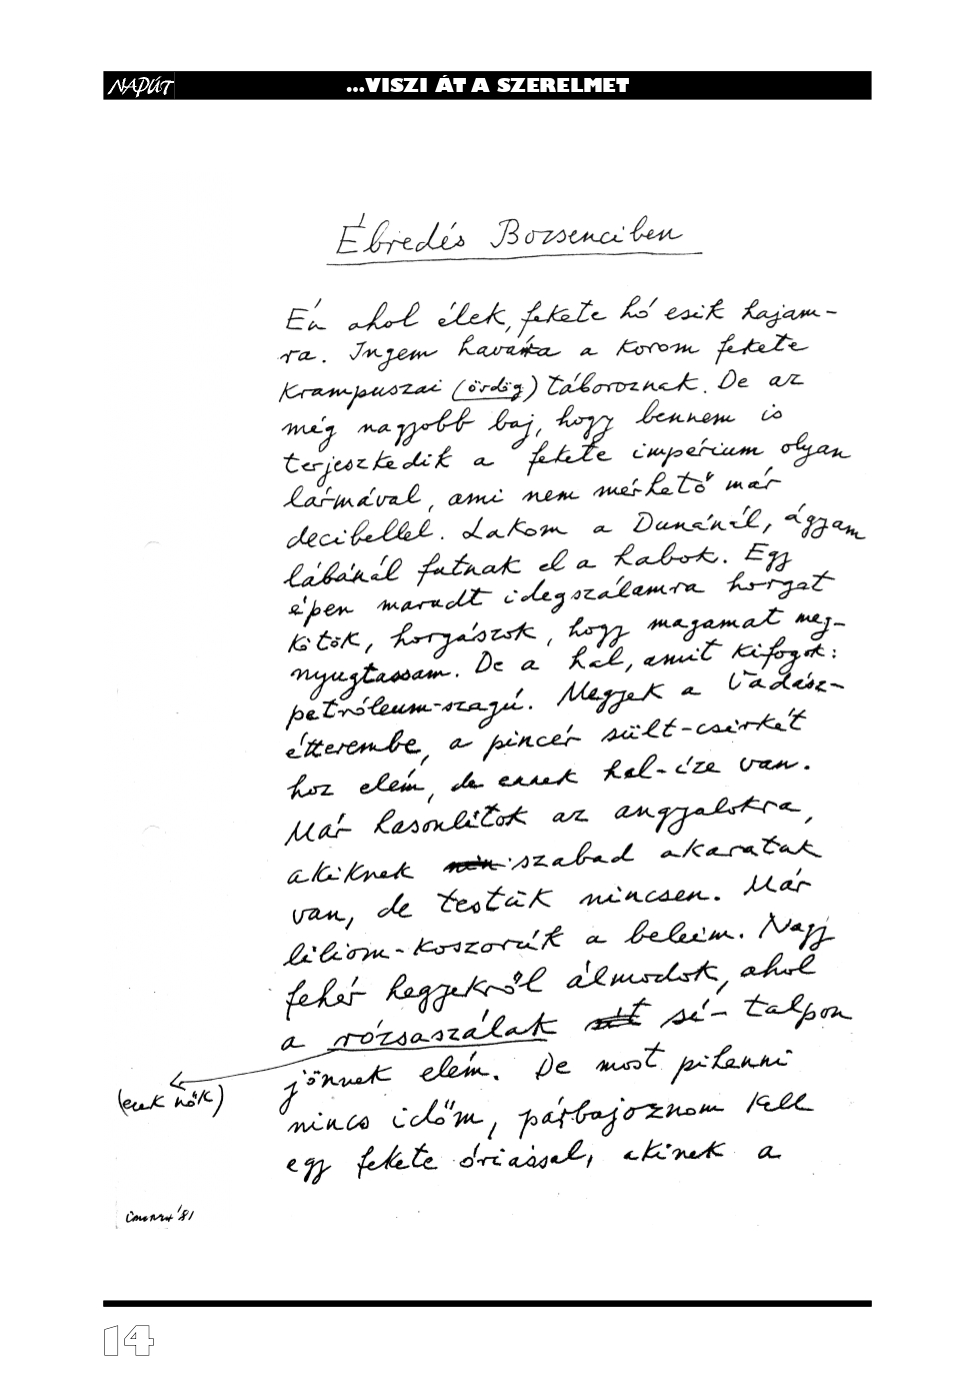 NAPÚT
...VISZI ÁT A SZERELMET
Ébredés Bozsenciben
Én ahol élek, fekete hó esik hajam-
ra. Ingem havára a korom fekete
krampuszai (ördög) táboroznak. De az
még nagyobb baj, hogy bennem is
terjeszkedik a fekete impérium olyan
lármával, ami nem mérhető már
decibellel. Lakom a Dunánál, ágyam
lábánál futnak el a habok. Egy
épen maradt idegszálamra horgot
kötök, horgászok, hogy magamat meg-
nyugtassam. De a hal, amit kifogok:
petróleum-szagú. Megyek a Vadász-
étterembe, a pincér sült-csirkét
hoz elém, de ennek hal-íze van.
Már hasonlítok az angyalokra,
akiknek szabad akaratuk
van, de testük nincsen. Már
liliom-koszorúk a beleim. Nagy
fehér hegyekről álmodok, ahol
a rózsaszálak sí-talpon
jönnek elém. De most pihenni
(ezek nők)
nincs időm, párbajoznom kell
egy fekete óriással, akinek a
'81
14